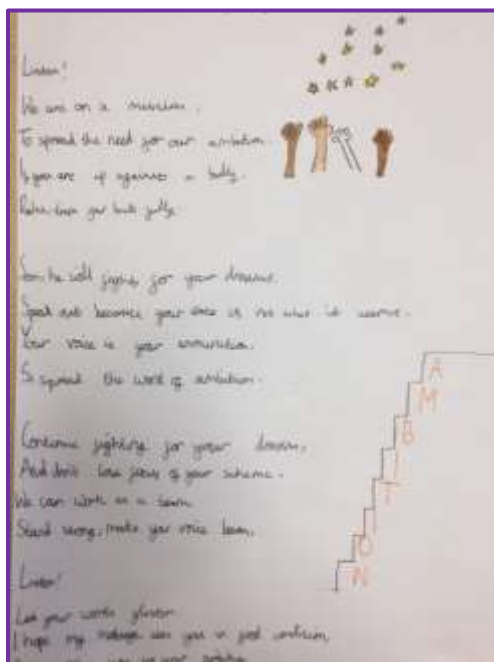 Listen!
We are on a mission.
To spread the need for our ambition.
If you are up against a bully.
your fully.
fight for your dreams.
Speak out because your voice is not what it seems.
Your voice is your ammunition.
So spread the word of ambition.
Continue fighting for your dreams,
And don't lose focus of your scheme.
We can work as a team
Stand strong, make your voice beam.
Listen!
Let your words glisten
I hope my message you in good condition
A
M
B
I
T
I
O
N